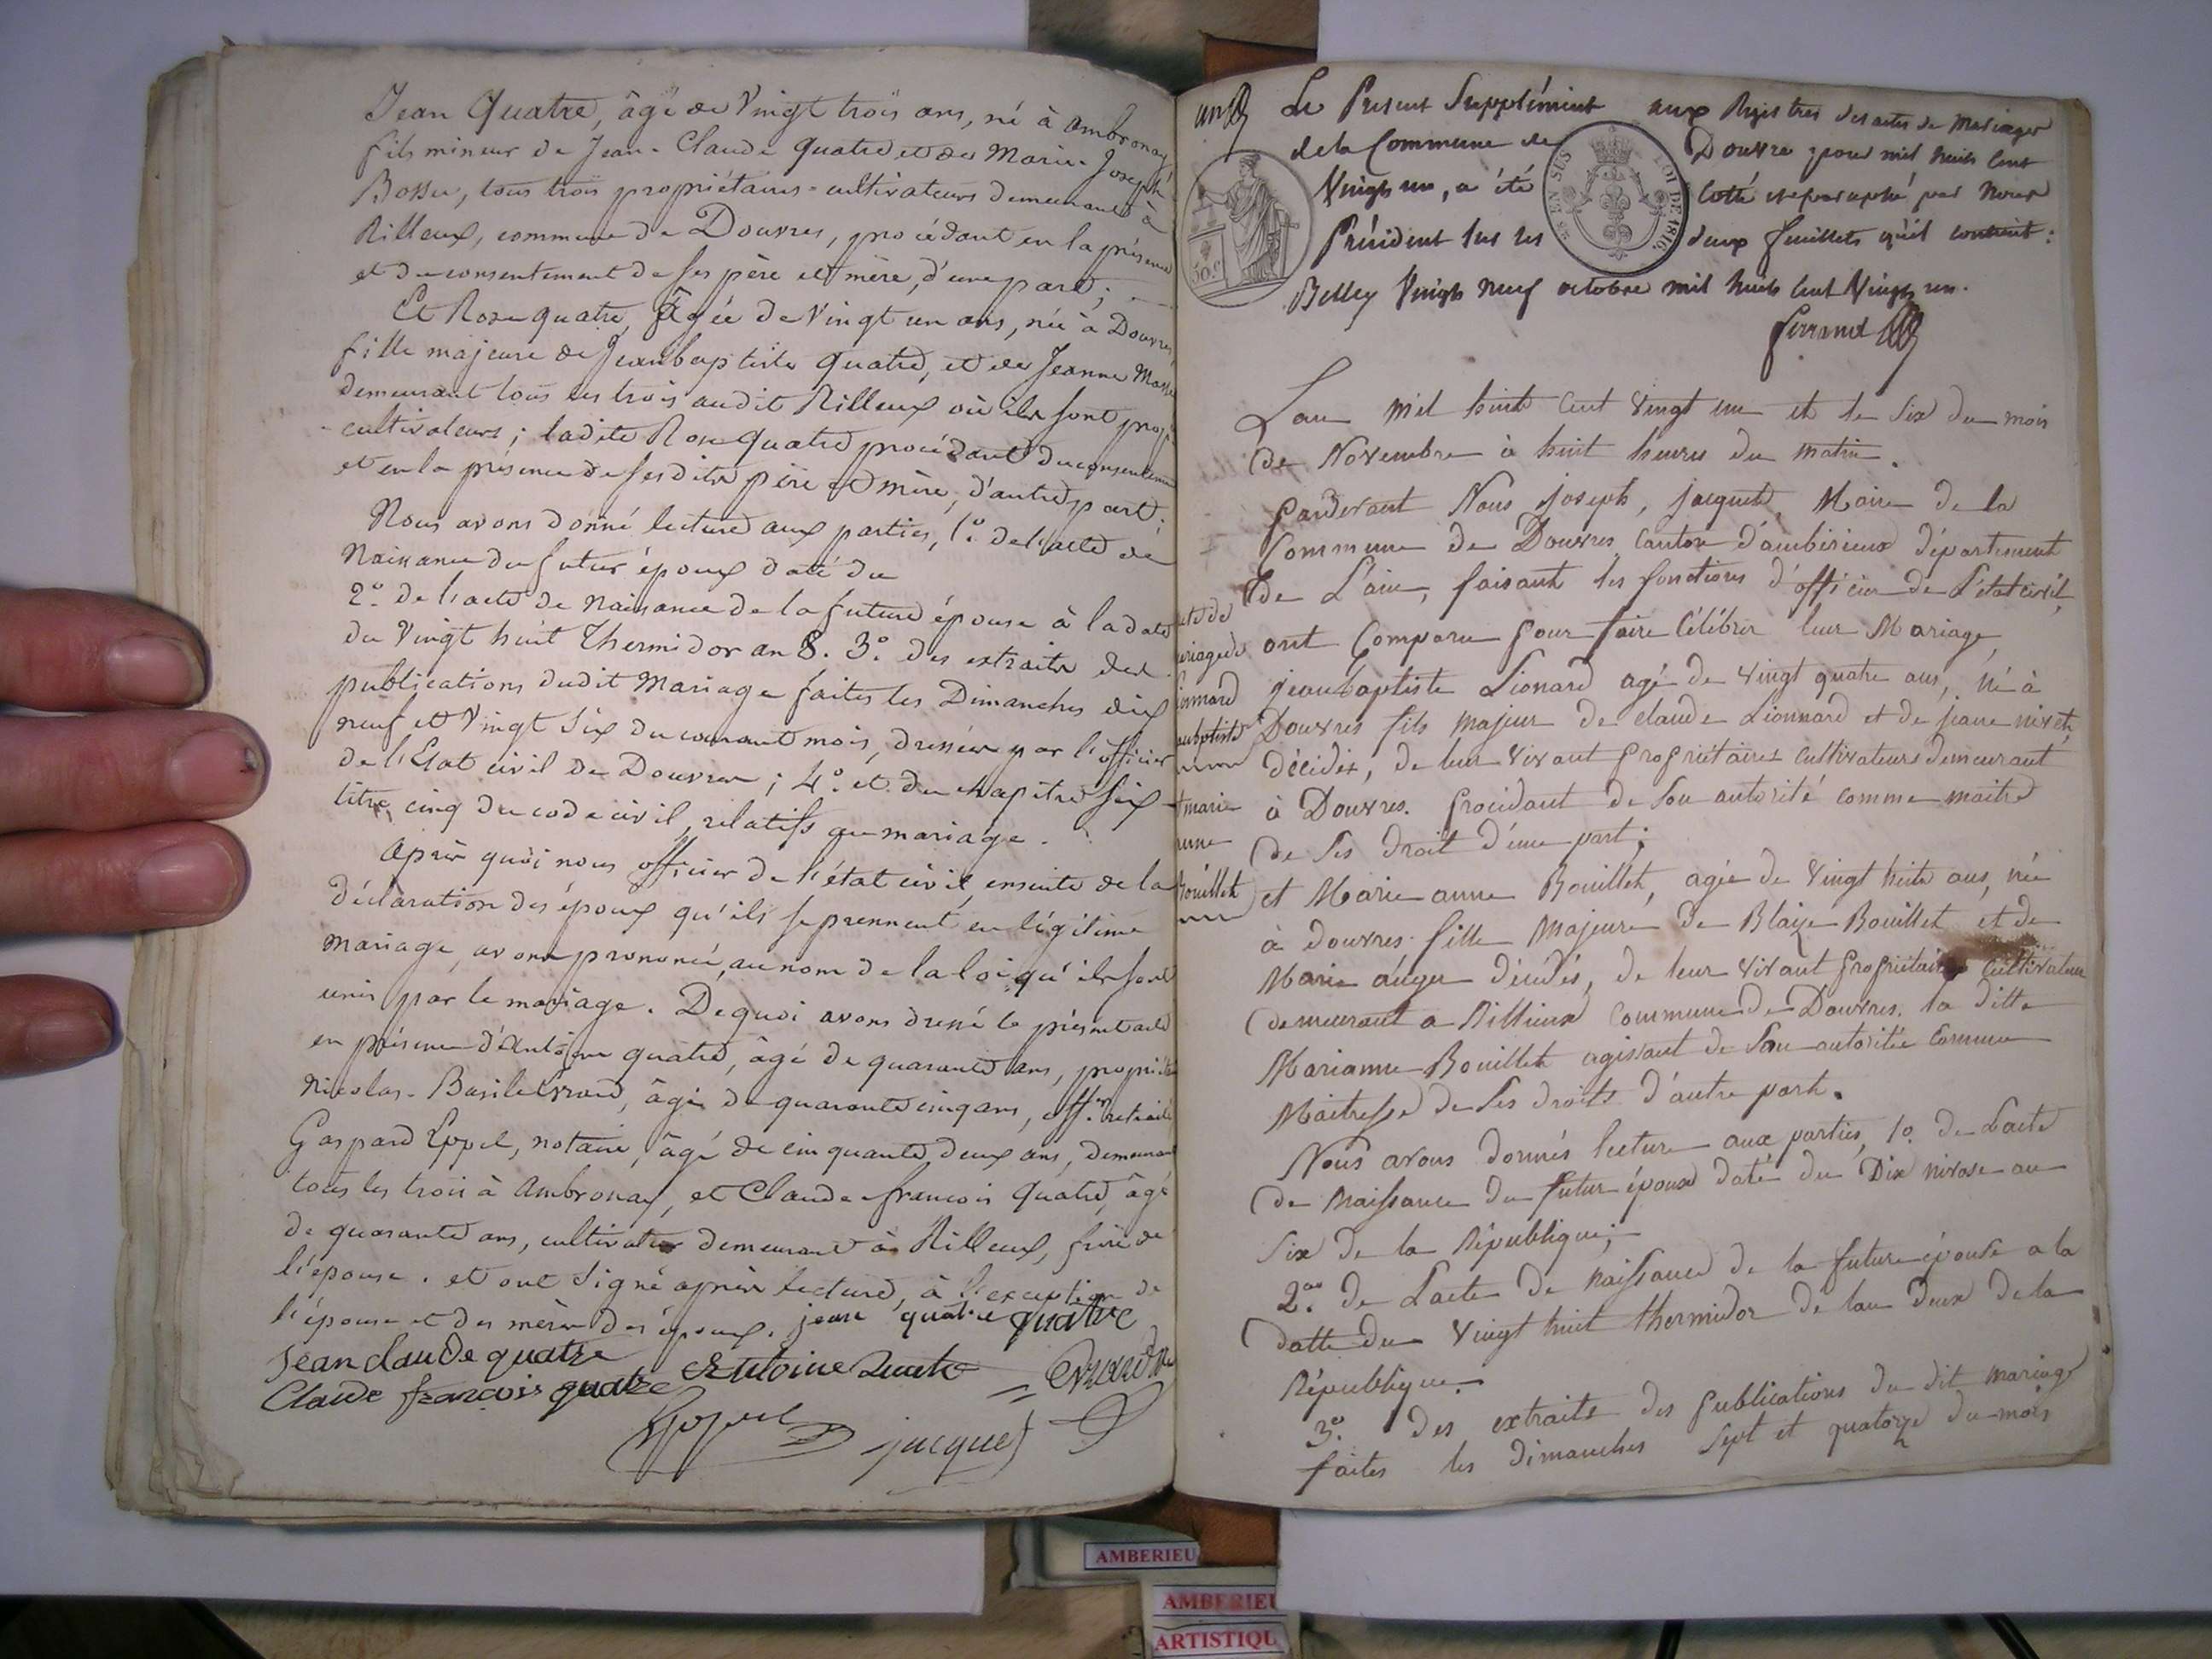 Jean Quatre, âgé de Vingt trois ans, né à Ambronay
fils mineur de Jean-Claude Quatre et de Marie-Joseph
Bossu, tous trois propriétaires-cultivateurs demeurants à
Rilleux, commune de Douvres, procédant en la présence
et du consentement de ses père et mère, d'une part;
Et Rose quatre, âgée de Vingt un ans, née à Douvres,
fille majeure de Jeanbaptiste Quatre, et de Jeanne
demeurant tous les trois audit Rilleux où ils sont prop
cultivateurs; ladite Rose Quatre procédant du consentement
et en la présence de sesdits père et mère, d'autre part;
Nous avons donné lecture aux parties, 1º. de l'acte de
Naissance du futur époux daté du
2º. de l'acte de Naissance de la future épouse à la date
du Vingt huit Thermidor an 8. 3º. des extraits des
publications dudit Mariage faites les Dimanches dix
neuf et Vingt Six du courant mois, dressées par l'officier
de l'Etat civil de Douvres; 4º. et du chapitre six
titre cinq du code civil, relatifs au mariage.
Après quoi nous officier de l'état civil, ensuite de la
déclaration des époux qu'ils se prennent en légitime
mariage, avons prononcé, au nom de la loi qu'ils sont
unis par le mariage. De quoi avons dressé le présent acte
en présence d'Antoine quatre, âgé de quarante ans, propriétaire
Nicolas-Basile Evrard, âgé de quarante cinq ans, off.er retraité
Gaspard Eppel, notaire, âgé de cinquante deux ans, demeurant
tous les trois à Ambronay, et Claude-françois Quatre, âgé
de quarante ans, cultivateur demeurant à Rilleux, frère de
l'épouse. et ont signé après lecture, à l'exception de
l'épouse et des mères des époux. jean quatre quatre
Jean claude quatre Antoine Quatre Evrard
Claude françois quatre
Eppel jacquet
Le Present Supplément aux Registres des actes de Mariages
de la Commune de Douvre pour mil huit cent
Vingt un, a été Cotté et paraphé par Nous
Président sur les deux feuillets qu'il contient:
Belley Vingt neuf octobre mil huit cent Vingt un.
EN SUS LOI DE 1816.
50 c
Lan mil huit Cent vingt un et le Six du mois
de Novembre à huit heures du matin.
Pardevant Nous joseph, jacquet, Maire de la
Commune de Douvres Canton d'ambérieux département
de L'ain, faisant les fonctions d'officier de L'état civil,
ont Comparu pour faire Célébrer leur Mariage
jeanbaptiste Lionard agé de vingt quatre ans, né à
Douvres fils majeur de claude Lionnard et de jeane nivet,
décédés, de leur vivant propriétaires cultivateurs demeurant
à Douvres. procédant de Son autorité comme maitre
de ses droit d'une part;
acte de
mariage de
Lionnard
jeanbaptiste
et marie
anne
Bouillet
et Marie anne Bouillet, agée de vingt huite ans, née
à douvres fille Majeure de Blaize Bouillet et de
Marie auger décédés, de leur vivant propriétaires Cultivateur
demeurant a Rillieux Commune de Douvres. la ditte
Marianne Bouillet agissant de Son autoritée Comme
Maitresse de Ses droits d'autre part.
Nous avons donnés lecture aux parties, 1º. de Lacte
de Naissance du futur époux daté du Dix nivose an
Six de la République;
2º. de Lacte de naissance de la future épouse a la
datte du vingt huit thermidor de lan deux de la
République.
3º. des extraits des publications du dit mariage
faites les dimanches Sept et quatorze du mois
AMBERIEU
AMBERIEU
ARTISTIQU